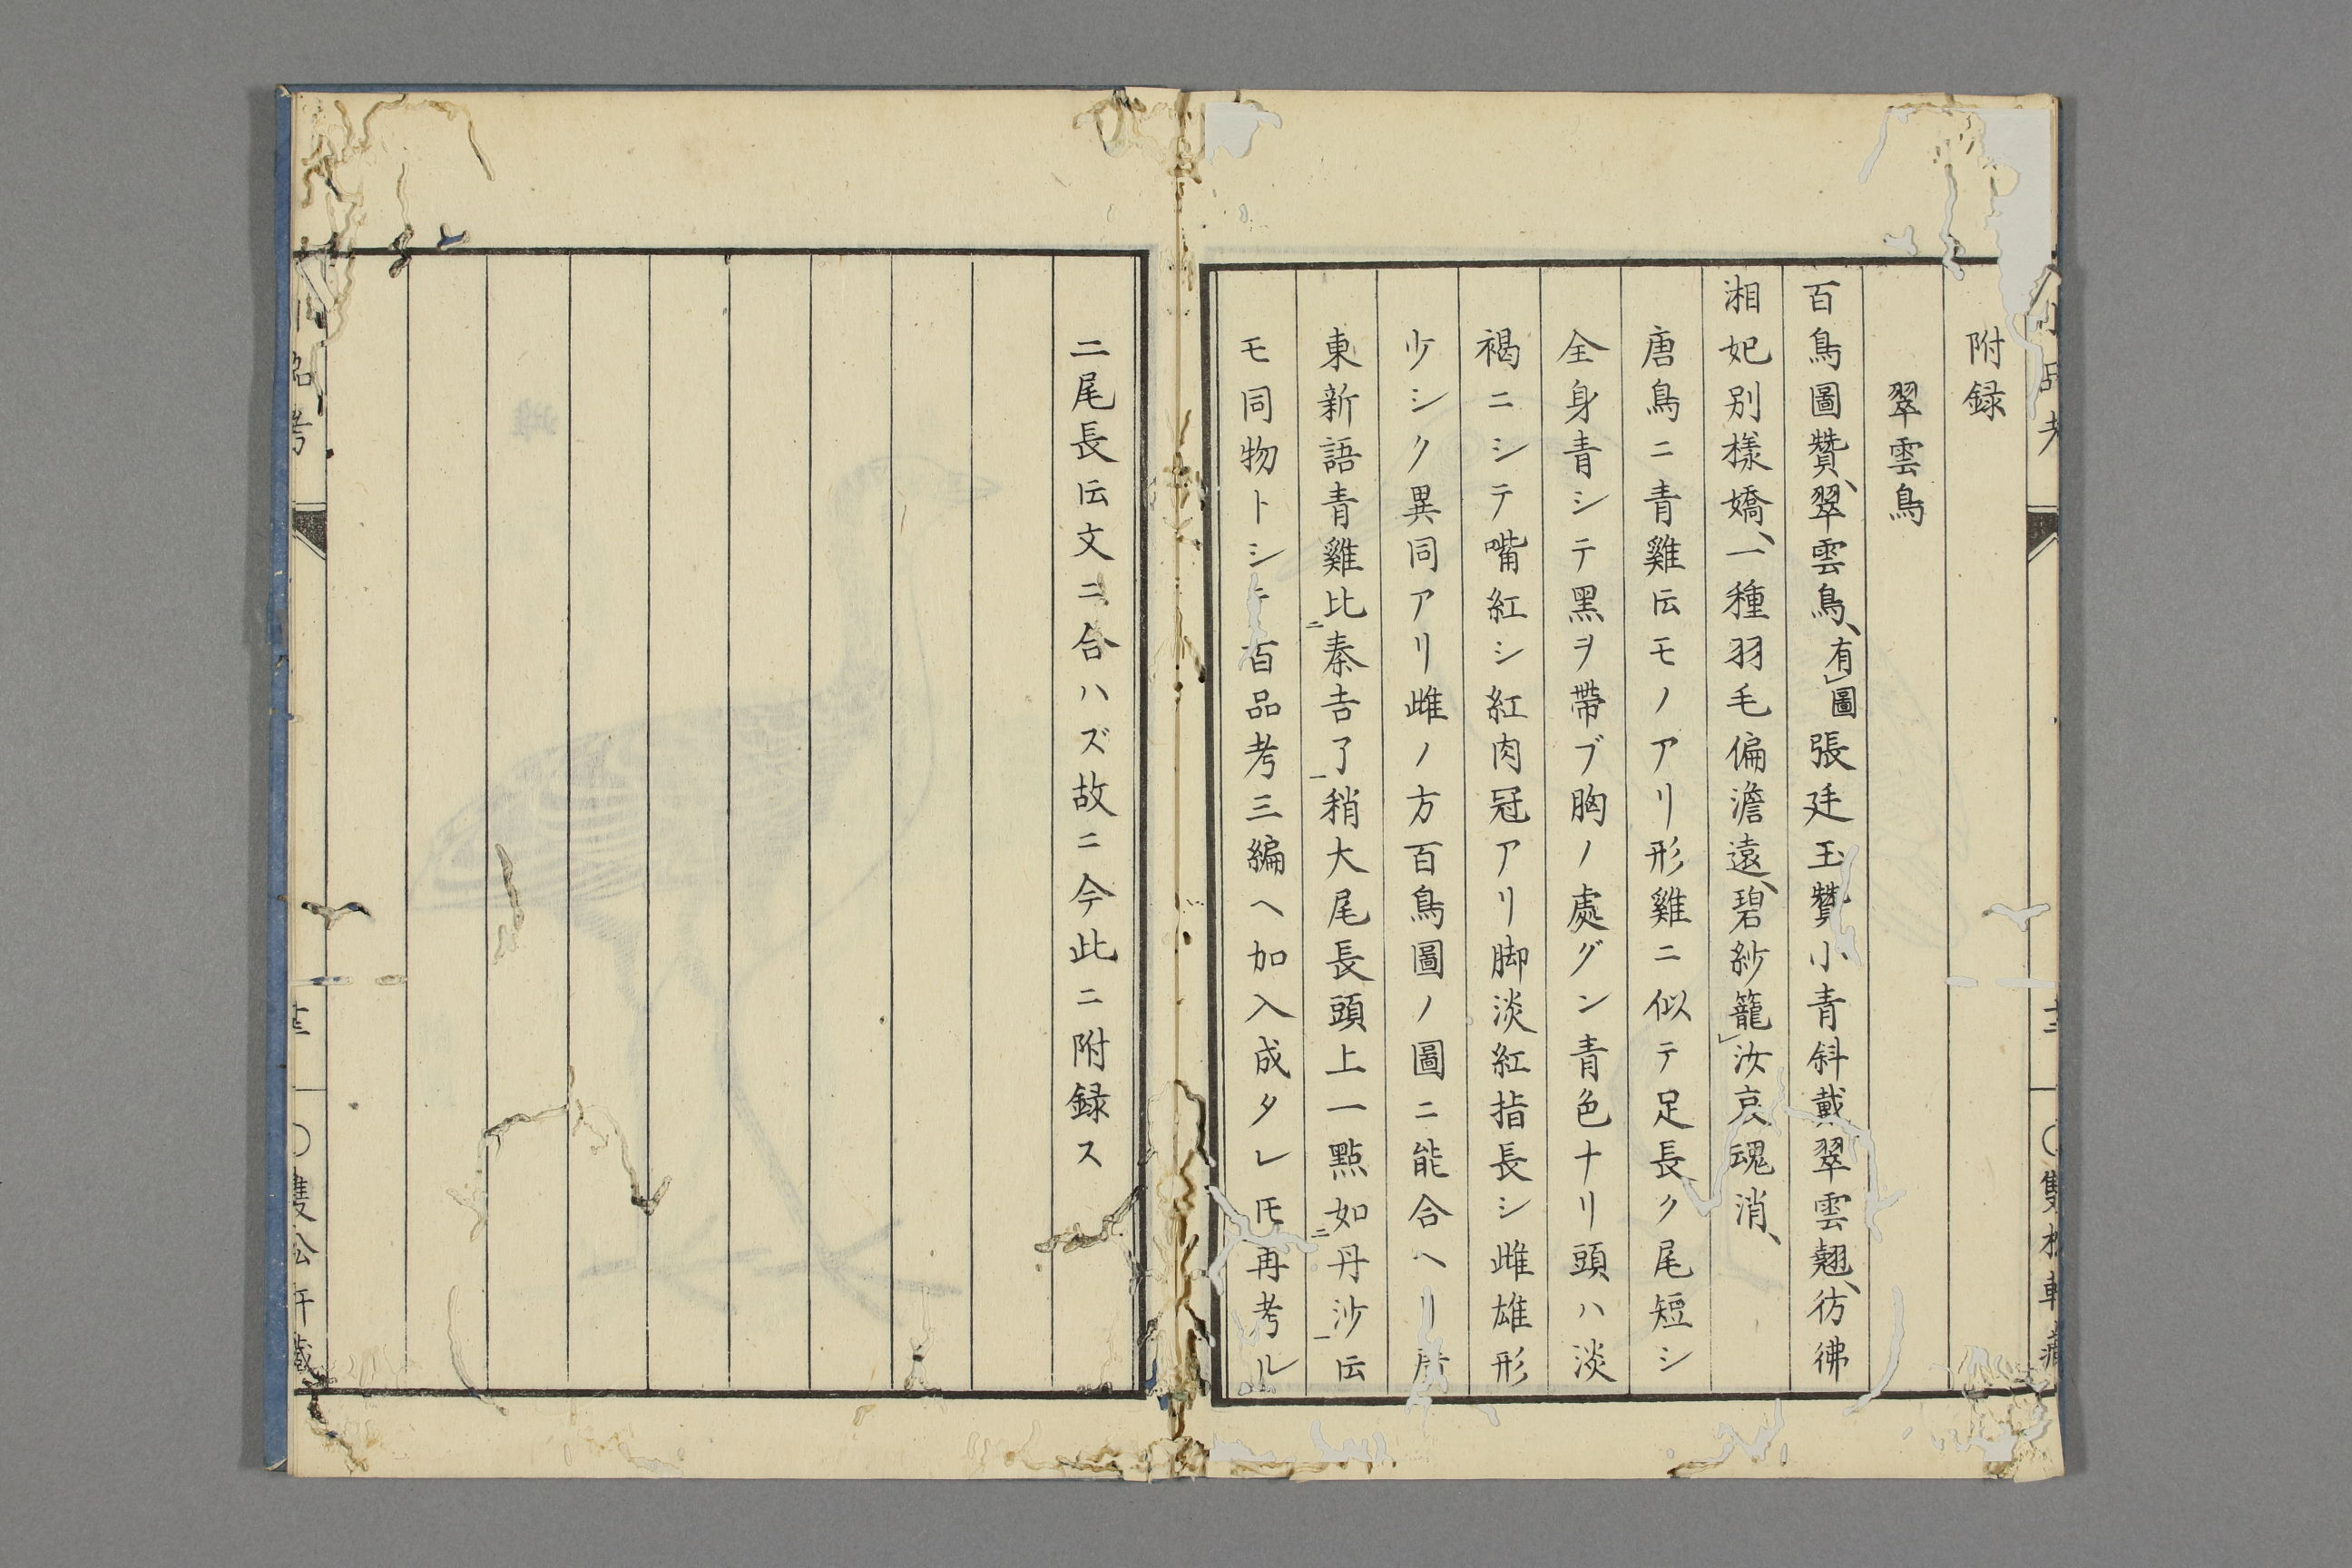 附録
翠雲鳥
百鳥圖賛、翠雲鳥、有圖張廷玉賛小青斜戴翠雲翹、彷彿
湘妃別樣嬌、一種羽毛偏澹遠、碧紗籠汝哀魂消、
唐鳥ニ青雞伝モノアリ形雞ニ似テ足長ク尾短シ
全身青シテ黑ヲ帶ブ胸ノ處グン青色ナリ頭ハ淡
褐ニシテ嘴紅シ紅肉冠アリ脚淡紅指長シ雌雄形
少シク異同アリ雌ノ方百鳥圖ノ圖ニ能合ヘリ廣
東新語青雞比ニ秦吉了一稍大尾長頭上一點如ニ丹沙一伝
モ同物トシ百品考三編ヘ加入成タレ𪜈再考ル
二尾長伝文ニ合ハズ故ニ今此ニ附録ス